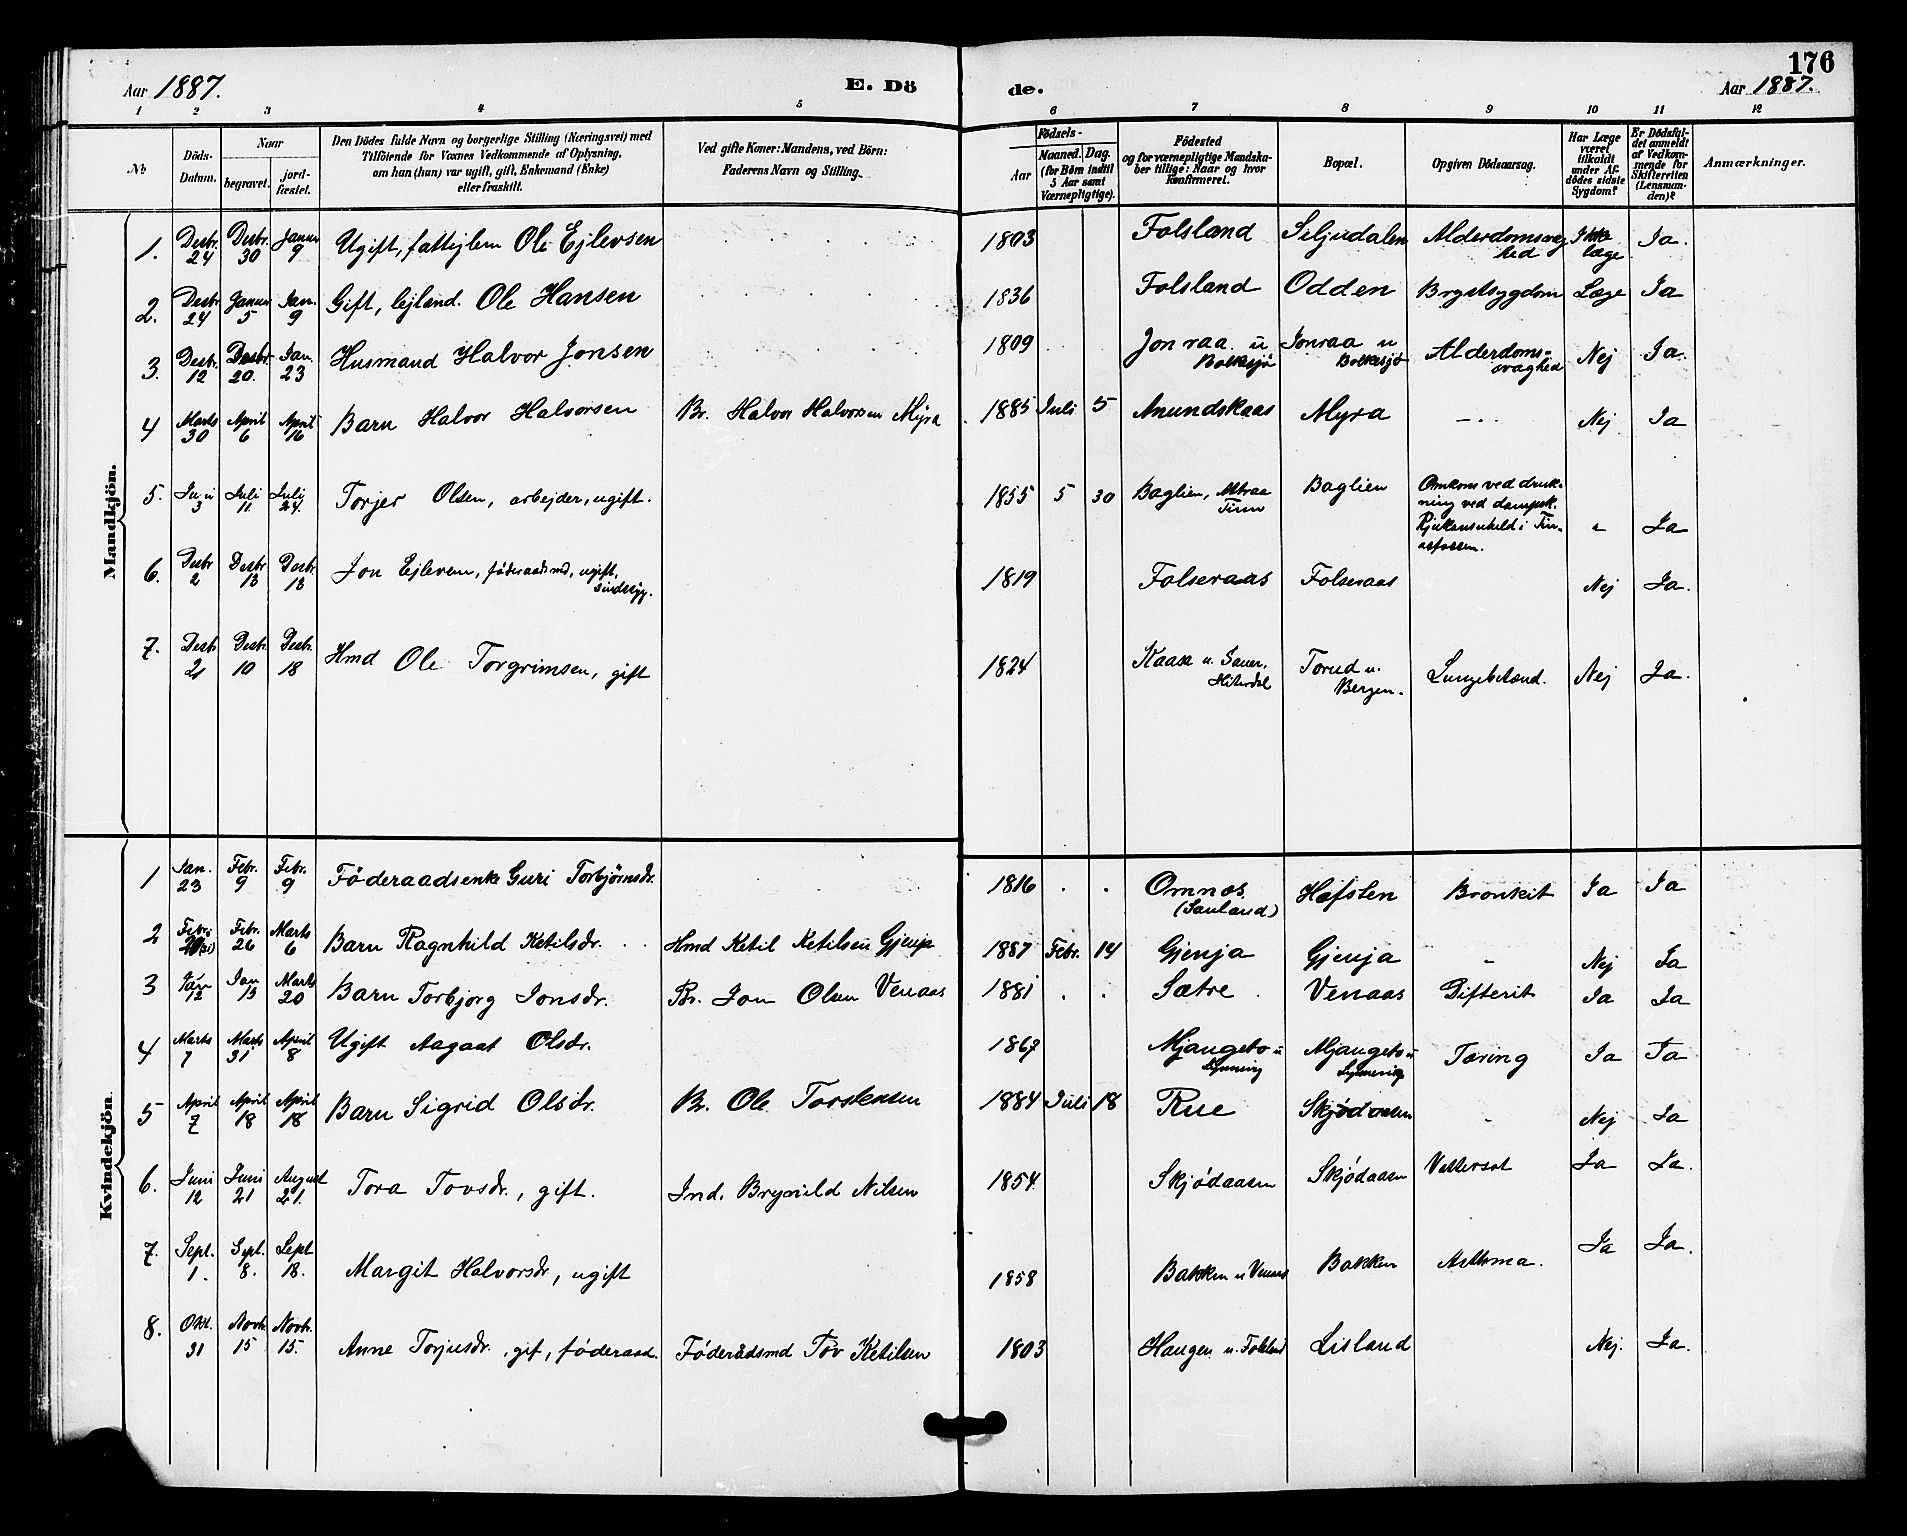 176
Aar 1887.
E. Dö
de.
Aar 1887.
1 2 3 4 5 6 7 8 9 10 11 12
No
Döds-
Datum.
Naar
begravet.
jord-
fæstet.
Den Dödes fulde Navn og borgerlige Stilling (Næringsvei) med
Tilföiende for Voxnes Vedkommende af Oplysning,
om han (hun) var ugift, gift, Enkemand (Enke)
eller fraskilt.
Ved gifte Koner: Mandens, ved Börn:
Faderens Navn og Stilling.
Födsels-
Aar
Maaned.
Dag.
(for Börn indtil
5 Aar samt
Værnepligtige).
Födested
og for værnepligtige Mandska-
ber tillige: Naar og hvor
Konfirmeret.
Bopæl.
Opgiven Dödsaarsag.
Har Læge
været
tilkaldt
under Af-
dödes sidste
Sygdom?
Er Dödsfal-
det anmeldt
af Vedkom-
mende for
Skifteretten
(Lensman-
den)?
Anmærkninger.
Mandkjön.
1. Desbr. 24 Desbr. 30 Januar 9 Ugift, fattiglem Ole Ejlevsen 1803 Folsland Siljudalen Alderdomssvag-
hed Ikke
læge Ja.
2. Desbr 24 Januar 5 Jan. 9 Gift, lejlænd. Ole Hansen 1836 Folsland Odden Brystsygdom Læge Ja
3. Desbr. 12 Desbr. 20. Jan. 23 Husmand Halvor Jonsen 1809 Jonraa u
Bolkesjø Jonraa u
Bolkesjø Alderdoms-
svaghed Nej Ja.
4 Marts 30 April 6 April 16 Barn Halvor Halvorsen Br. Halvor Halvorsen Myra 1885 Juli 5 Anundskaas Myra - Nej Ja
5. Juni 3 Juli 11. Juli 24. Torjer Olsen, arbejder, ugift. 1855 5 30 Baglien, Attraa
Tinn Baglien Omkom ved druk-
ning ved dampsk.
Rjukan i Tin-
osfossen. " Ja
6. Desbr 2 Desbr. 13 Desbr. 13 Jon Ejleven, føderaadsmd, ugift,
sindssyg. 1819 Folseraas Folseraas Nej Ja.
7. Desbr. 2 Desbr. 10 Desbr. 18 Hmd Ole Torgrimsen, gift 1824 Kaasa u. Sauer,
Hiterdal Torud u.
Bergen. Lungebetænd. Nej Ja.
Kvindekjön.
1 Jan. 23 Febr. 9 Febr. 9 Føderaadsenke Guri Torbjørnsdr. 1816 Omnæs
(Sauland) Hafsten Bronkit Ja Ja
2 Febr. 20 Febr. 26 Marts 6 Barn Ragnhild Ketilsdr. Hmd Ketil Ketilsen Gjenja 1887 Febr. 14 Gjenja Gjenja - Nej Ja
3 Jan 12 Jan 13 Marts 20 Barn Torbjørg Jonsdr. Br. Jon Olsen Venaas 1881 Sætre Venaas Difterit Ja Ja
4 Marts 7 Marts 31. April 8 Ugift Aagaat Olsdr. 1867 Mjaugeto u
Mjaugeto u
Tæring Ja Ja
5 April 7 April 18 April 18 Barn Sigrid Olsdr. Br. Ole Torstensen 1884 Juli 18 Rue Skjødaasen - Nej Ja
6. Juni 12 Juni 21 August 21. Tora Tovsdr., gift. Ind. Brynild Nilsen 1854 Skjødaasen Skjødaasen Vattersot Ja Ja.
7. Sept. 1. Sept. 8. Sept 18. Margit Halvorsdr, ugift 1858 Bakken u Venaas Bakken Asthma. Ja Ja.
8. Okt. 31 Novbr. 15 Novbr. 15. Anne Torjusdr., gif, føderaad. Føderådsmd Tov Ketilsen 1803 Haugen u. Folsland Lisland Nej. Ja.